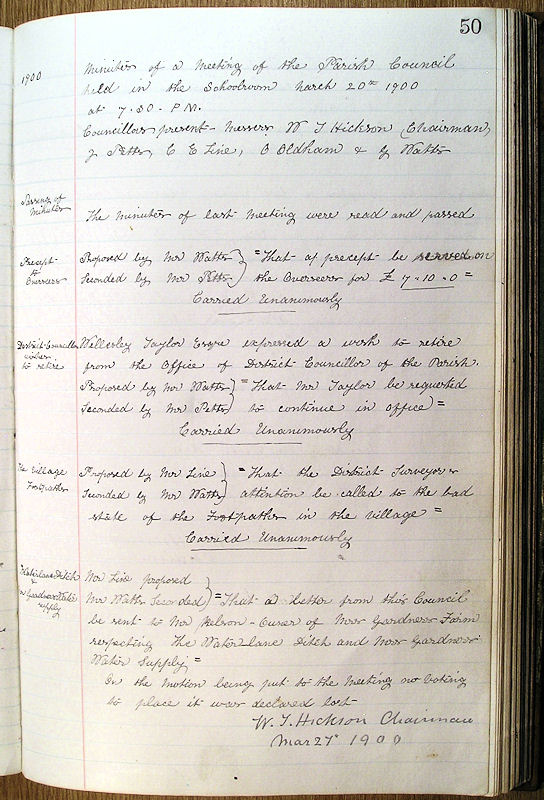 50
1900
Minutes of a Meeting of the Parish Council
held in the Schoolroom March 20th 1900
at 7.30. P.M.
Councillors present - Messers W T Hickson (Chairman,
J Petts, C E Line, O Oldham & J Watts
Passing of
Minutes
The Minutes of last Meeting were read and passed
Precept
to
Overseers
Proposed by Mr Watts } = That a precept be served on
Seconded by Mr Petts } the Overseers for £ 7-10-0 =
Carried Unanimously
District Councillor
wishes
to retire
Wellesley Taylor Esqre expressed a wish to retire
from the Office of District Councillor of the Parish.
Proposed by Mr Watts } = That Mr Taylor be requested
Seconded by Mr Petts } to continue in office) =
Carried Unanimously
The Village
Footpaths
Proposed by Mr Line } = That the District Surveyors
Seconded by Mr Watts } attention be called to the bad
state of the Footpaths in the village =
Carried Unanimously
Water lane Ditch
&
Gardners Water
supply
Mr Line proposed }
Mr Watts Seconded } = That a Letter from this Council
be sent to Mr Nelson - Owner of Mrs Gardners Farm
respecting The Water lane Ditch and Mrs Gardners
Water Supply =
On the Motion being put to the Meeting no voting
to place it was declared lost
W. T. Hickson Chairman
Mar 27 1900